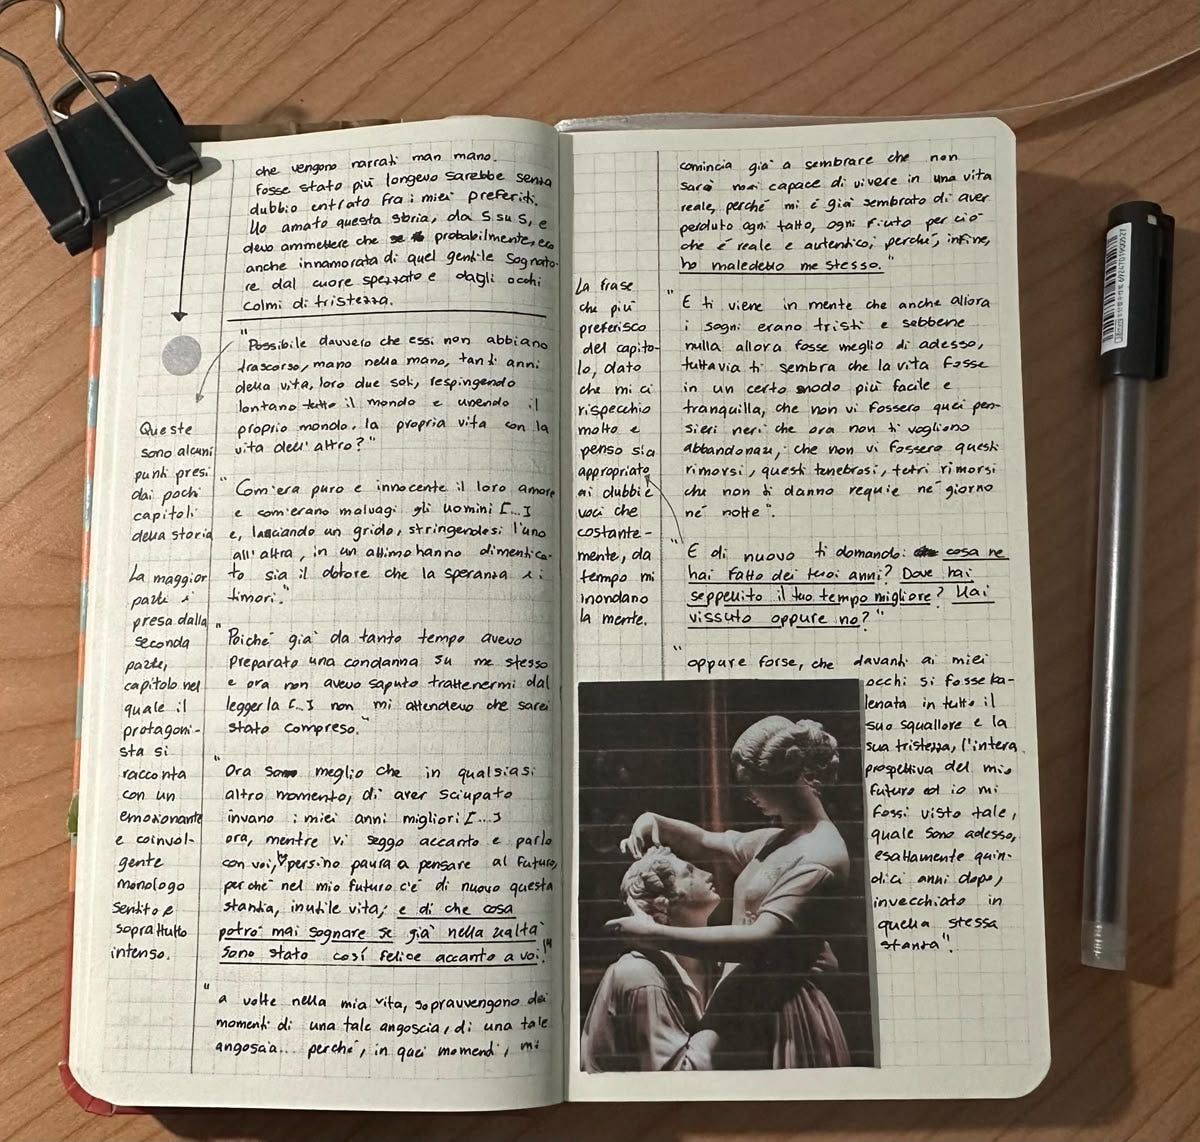 che vengono narrati man mano.
Fosse stato più longevo sarebbe senza
dubbio entrato fra i miei preferiti.
Ho amato questa storia, da 5 su 5, e
devo ammettere che probabilmente, ero
anche innamorata di quel gentile sognato-
re dal cuore spezzato e dagli occhi
colmi di tristezza.
"Possibile davvero che essi non abbiano
trascorso, mano nella mano, tanti anni
della vita, loro due soli, respingendo
lontano tutto il mondo e unendo il
proprio mondo, la propria vita con la
vita dell'altro?"
"Com'era puro e innocente il loro amore
e com'erano malvagi gli uomini [...]
e, lanciando un grido, stringendosi l'uno
all'altra, in un attimo hanno dimentica-
to sia il dolore che la speranza e i
timori."
"Poiché già da tanto tempo avevo
preparato una condanna su me stesso
e ora non avevo saputo trattenermi dal
leggerla [...] non mi attendevo che sarei
stato compreso."
"Ora so meglio che in qualsiasi
altro momento, di aver sciupato
invano i miei anni migliori [...]
ora, mentre vi seggo accanto e parlo
con voi, persino paura a pensare al futuro,
perché nel mio futuro c'è di nuovo questa
stantia, inutile vita; e di che cosa
potrò mai sognare se già nella realtà
sono stato così felice accanto a voi!"
"a volte nella mia vita, sopravvengono dei
momenti di una tale angoscia, di una tale
angoscia... perché, in quei momenti, mi
Queste
sono alcuni
punti presi
dai pochi
capitoli
della storia
La maggior
parte è
presa dalla
seconda
parte,
capitolo nel
quale il
protagoni-
sta si
racconta
con un
emozionante
e coinvol-
gente
monologo
sentito e
soprattutto
intenso.
comincia già a sembrare che non
sarò mai capace di vivere in una vita
reale, perché mi è già sembrato di aver
perduto ogni tatto, ogni fiuto per ciò
che è reale e autentico; perché, infine,
ho maledetto me stesso."
"E ti viene in mente che anche allora
i sogni erano tristi e sebbene
nulla allora fosse meglio di adesso,
tuttavia ti sembra che la vita fosse
in un certo modo più facile e
tranquilla, che non vi fossero quei pen-
sieri neri che ora non ti vogliono
abbandonare; che non vi fossero questi
rimorsi, questi tenebrosi, tetri rimorsi
che non ti danno requie né giorno
né notte".
"E di nuovo ti domando: cosa ne
hai fatto dei tuoi anni? Dove hai
seppellito il tuo tempo migliore? Hai
vissuto oppure no?"
"oppure forse, che davanti ai miei
occhi si fosse ba-
lenata in tutto il
suo squallore e la
sua tristezza, l'intera
prospettiva del mio
futuro ed io mi
fossi visto tale,
quale sono adesso,
esattamente quin-
dici anni dopo,
invecchiato in
quella stessa
stanza".
La frase
che più
preferisco
del capito-
lo, dato
che mi ci
rispecchio
molto e
penso sia
appropriato
ai dubbi e
voci che
costante-
mente, da
tempo mi
inondano
la mente.